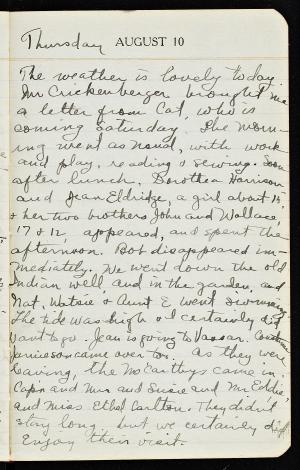 Thursday AUGUST 10
The weather is lovely today.
Mr Crickenberger brought me
a letter from Cat, who is
coming Saturday. The morn-
ing went as usual, with work
and play, reading & sewing. Soon
after lunch. Dorothea Harrison
and Jean Eldridge, a girl about 15,
& her two brothers John and Wallace,
17 & 12, appeared, and spent the
afternoon. Bob disappeared im-
mediately. We went down the old
Indian well, and in the garden, and
Nat, Watsie & Aunt E. went swimming.
The tide was high & I certainly did
want to go. Jean is going to Vassar.
Jamieson came over too. As they were
leaving, the McCarthys came in.
Capn and Mrs and Susie and Mr Eddie,
and Miss Ethel Carlton. They didn't
stay long, but we certainly did
Enjoy their visit.